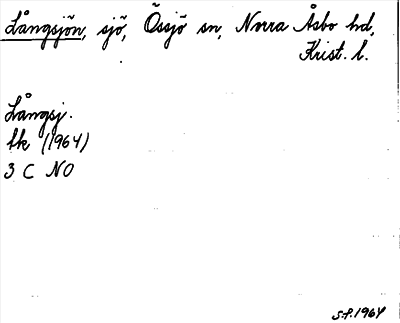 Långsjön, sjö, Össjö sn, Norra Åsbo hd,
Krist. l.
Långsj.
tk (1964)
3 C NO
S.F. 1964